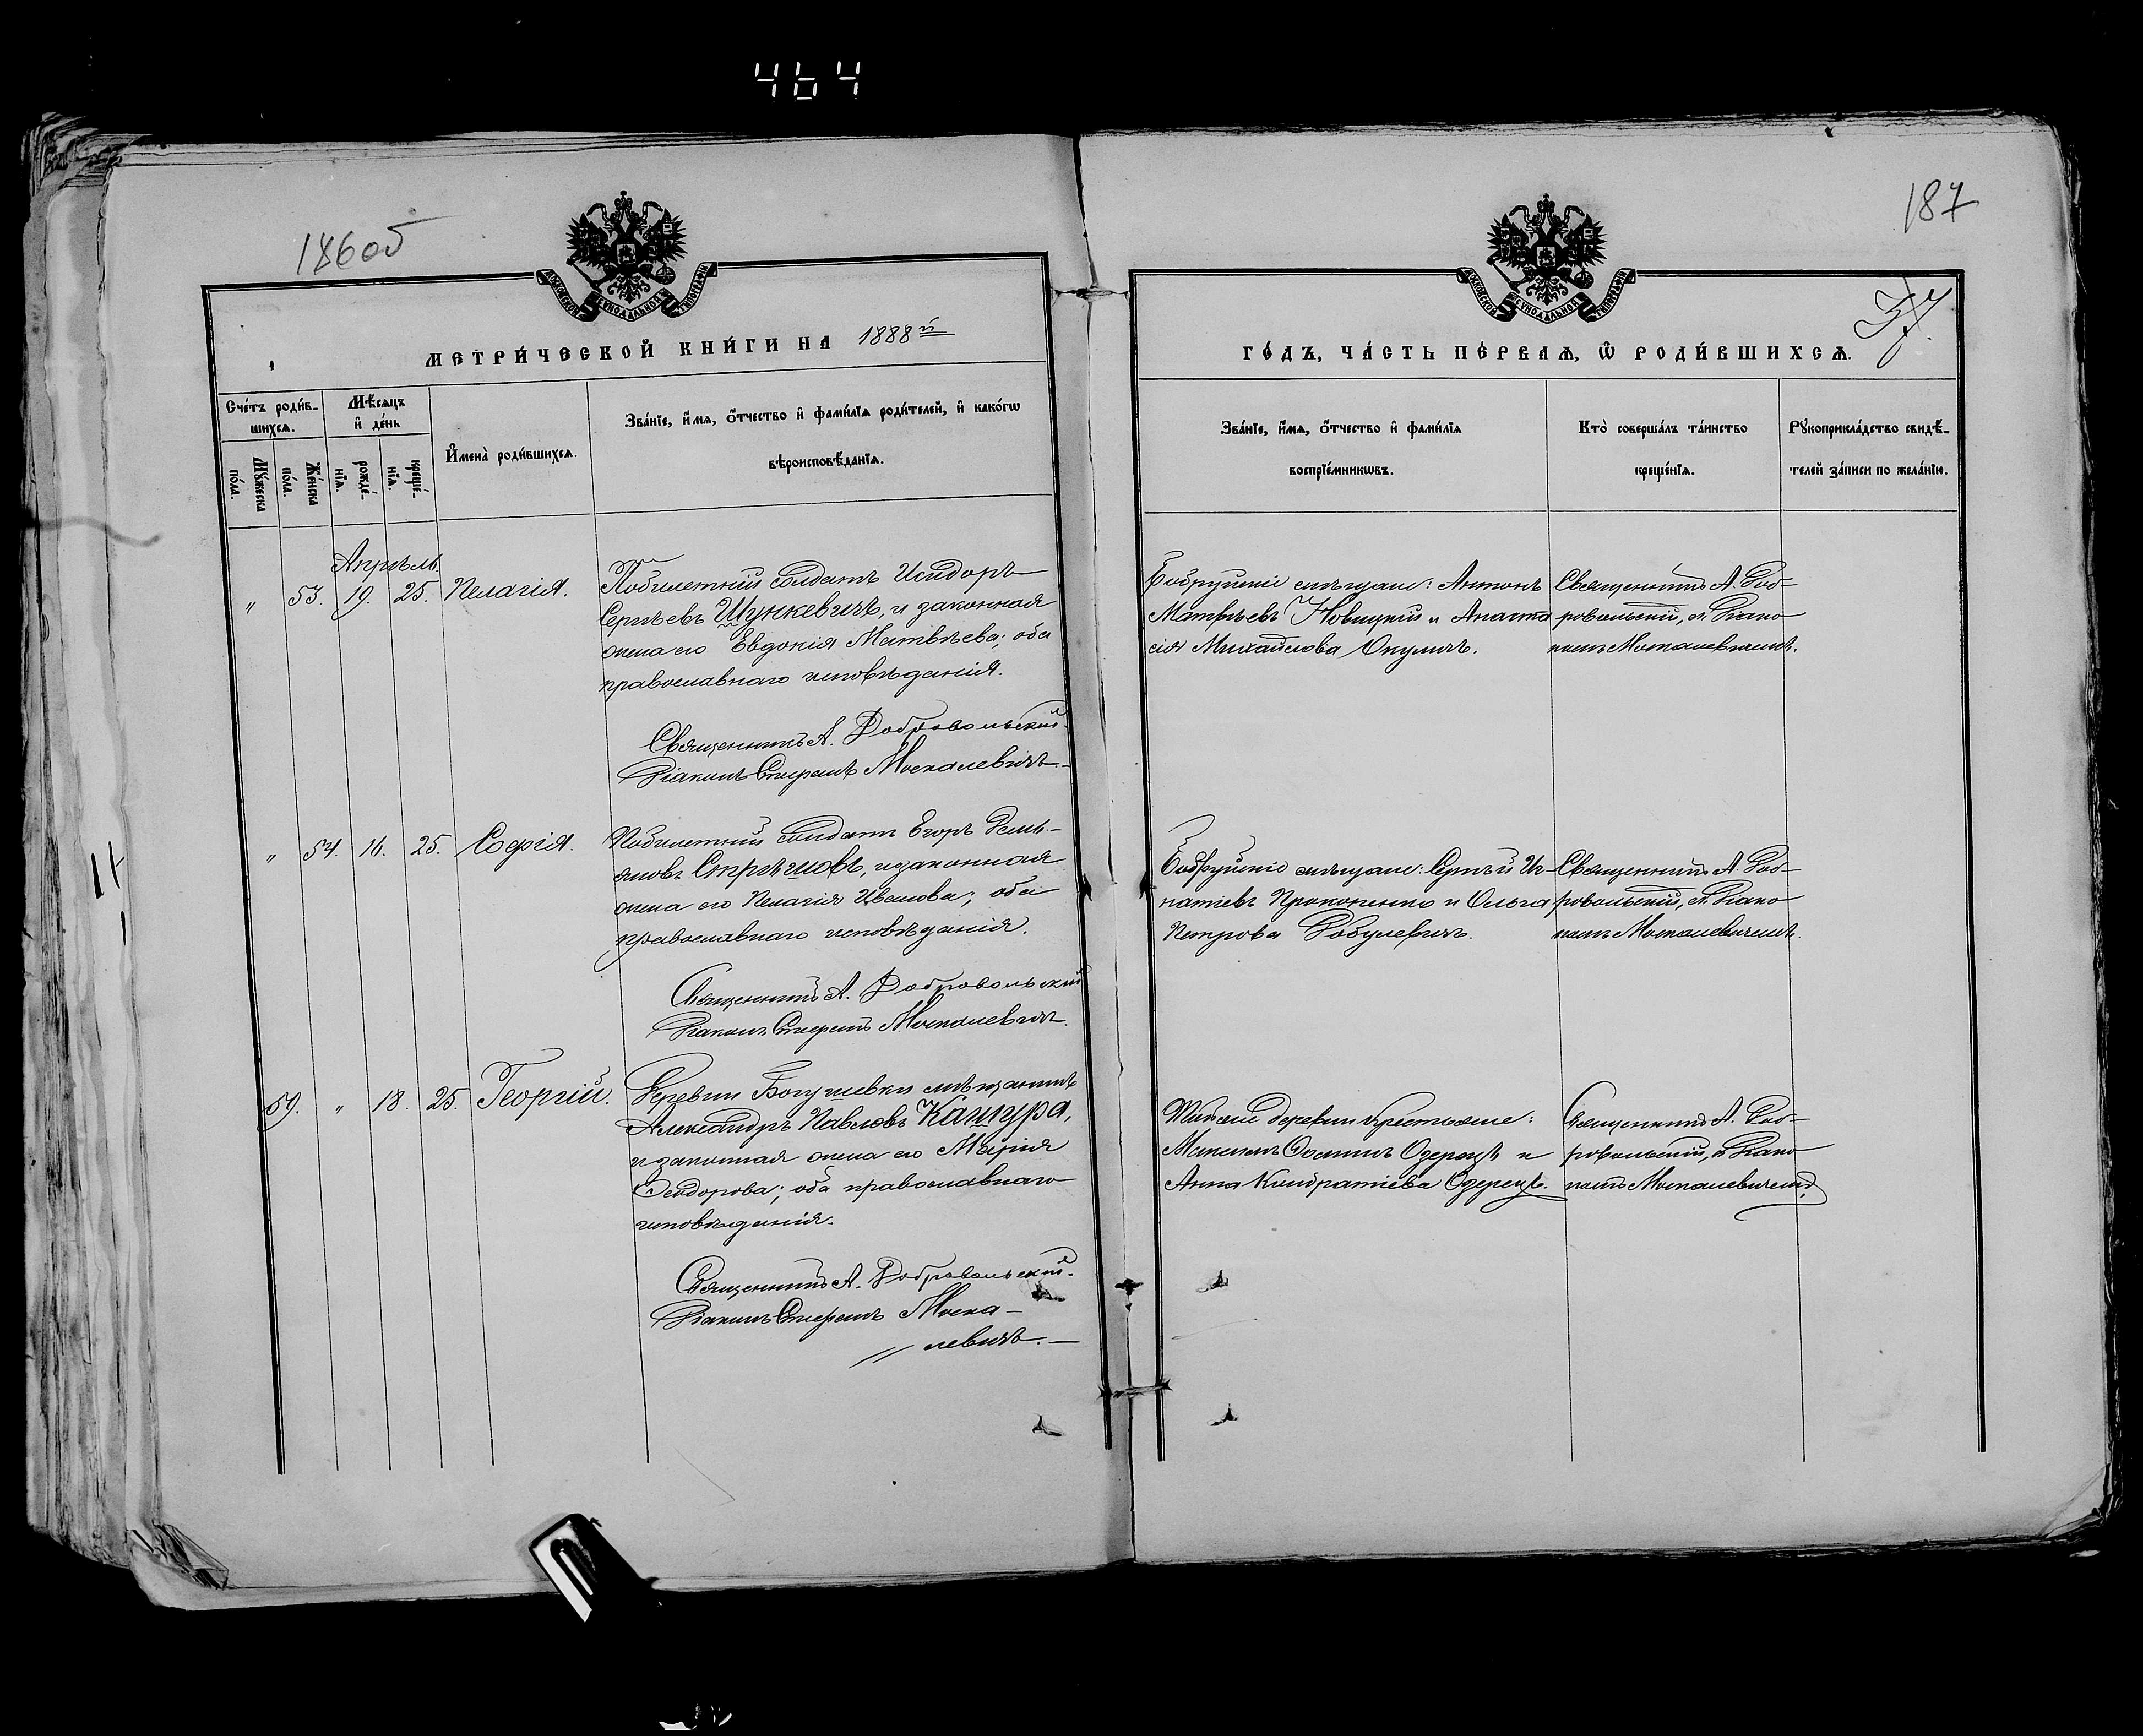 464
186об
187
37
МОСКОВСКОЙ СѴНОДАЛЬНОЙ ТИПОГРАФІИ
МОСКОВСКОЙ СѴНОДАЛЬНОЙ ТИПОГРАФІИ
МЕТРИ́ЧЕСКОЙ КНИ́ГИ НА 1888й
ГО́ДЪ, ЧА́СТЬ ПЕ́РВАѦ, Ѡ҆ РОДИ́ВШИХСѦ.
Сче́тъ роди́в-
шихсѧ.
Мѣ́сѧцъ
и҆ де́нь
Мꙋ́жеска
по́ла.
Же́нска
по́ла.
рожде́-
нїѧ.
креще́-
нїѧ.
И҆мена̀ роди́вшихсѧ.
Зва́нїе, и҆́мѧ, ѻ҆́тчество и҆ фами́лїѧ роди́телей, и҆ како́гѡ
вѣроисповѣ́данїѧ.
Зва́нїе, и҆́мѧ, ѻ҆́тчество и҆ фами́лїѧ
воспрїе́мникѡвъ.
Кто̀ соверша́лъ та́инство
креще́нїѧ.
Рꙋкоприкла́дство свидѣ́-
телей за́писи по жела́нїю.
Апрѣль.
" 53. 19. 25. Пелагія.
Побилетный солдатъ Исидоръ
Сергѣевъ Шункевичъ, и законная
жена его Евдокія Матвѣева; оба
православнаго исповѣданія.
Священникъ А. Добровольскій.
Діаконъ Стефанъ Москалевичъ.
Бобруйскіе мѣщане: Антонъ
Матвѣевъ Новицкій и Анаста
сія Михайлова Окуличъ.
Священникъ А. Доб-
ровольскій, съ Діако
номъ Москалевичемъ.
" 54. 16. 25. Софія.
Побилетный солдатъ Егоръ Демь-
яновъ Стрѣшовъ, и законная
жена его Пелагія Иванова; оба
православнаго исповѣданія.
Священникъ А. Добровольскій
Діаконъ Стефанъ Москалевичъ.
Бобруйскіе мѣщане: Сергѣй Иг-
натіевъ Прокопенко и Ольга
Петрова Робулевичъ.
Священникъ А. Доб-
ровольскій, съ Діако
номъ Москалевичемъ.
59. " 18. 25. Георгій.
Деревни Богушевки мѣщанинъ
Александръ Павловъ Кацура,
и законная жена его Марія
Ѳеодорова; оба православнаго
исповѣданія.
Священникъ А. Добровольскій.
Діаконъ Стефанъ Моска-
левичъ.
деревни крестьяне:
Одерець и
Анна Кондратіева Одерець.
Священникъ А. Доб-
ровольскій, съ Діако
номъ Москалевичемъ.